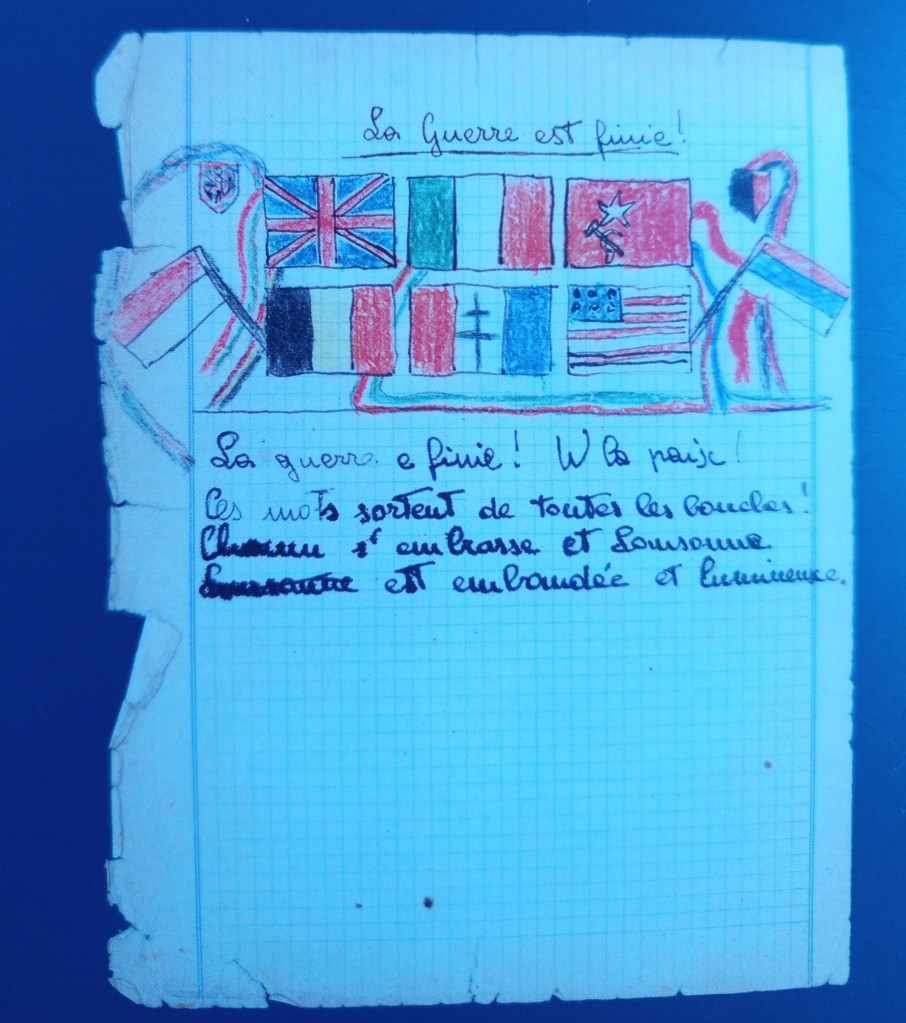 La Guerre est finie!
La guerra e finie! W la paix!
Ces mots sortent de toutes les bouches!
Chacun s'embrasse et Lausanne
est embaudée et lumineuse.